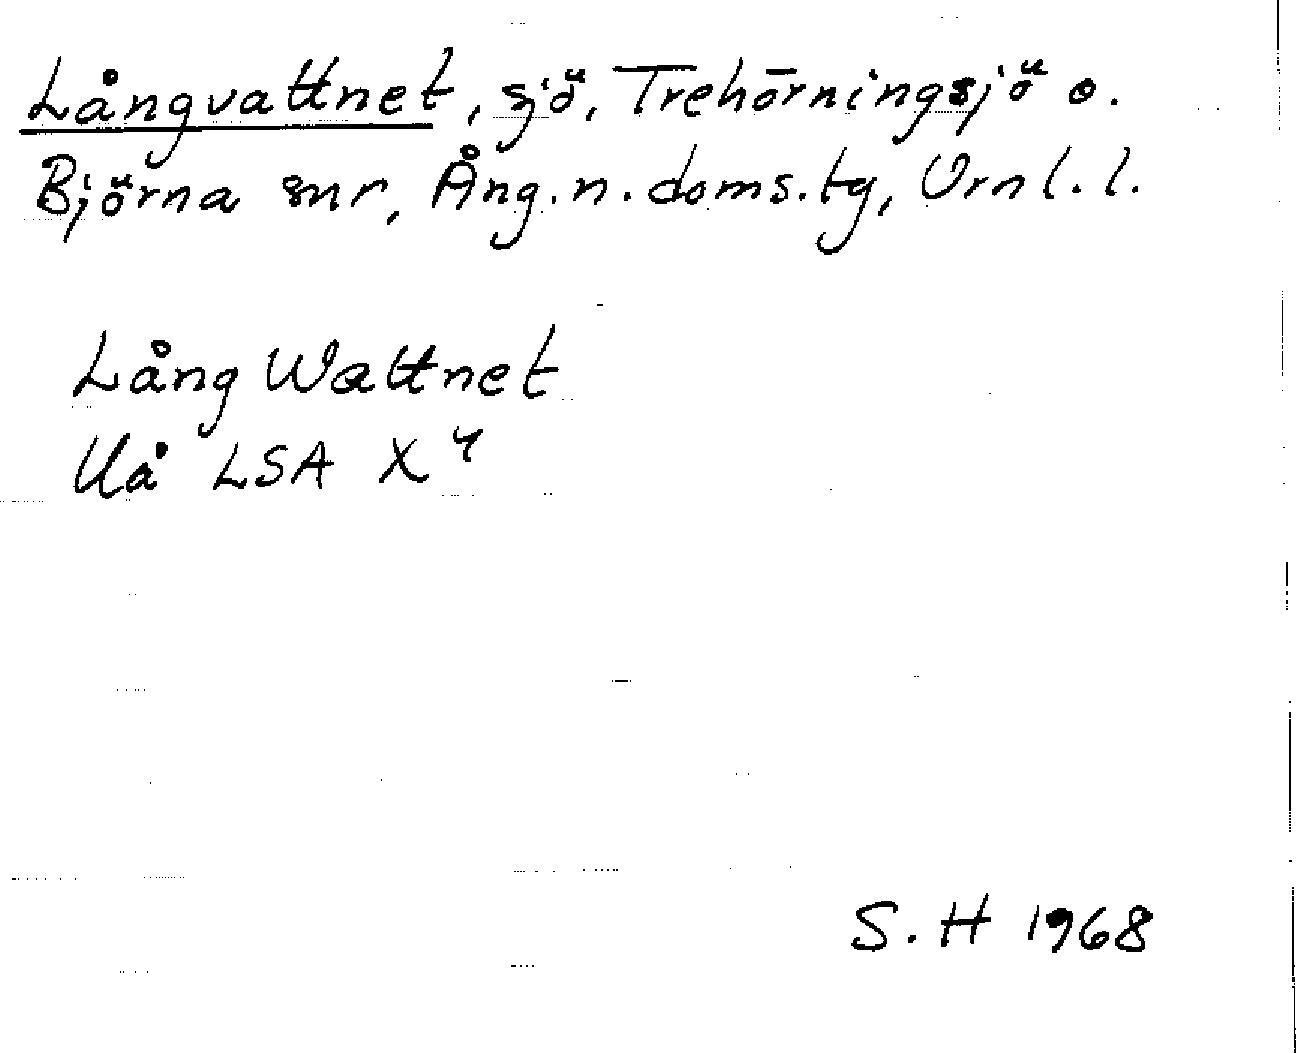 Långvattnet, sjö, Trehörningsjö o.
Björna snr, Ång.n.doms.tg, Örnl.l.
Lång Wattnet
Uå LSA X 4
S.H 1968